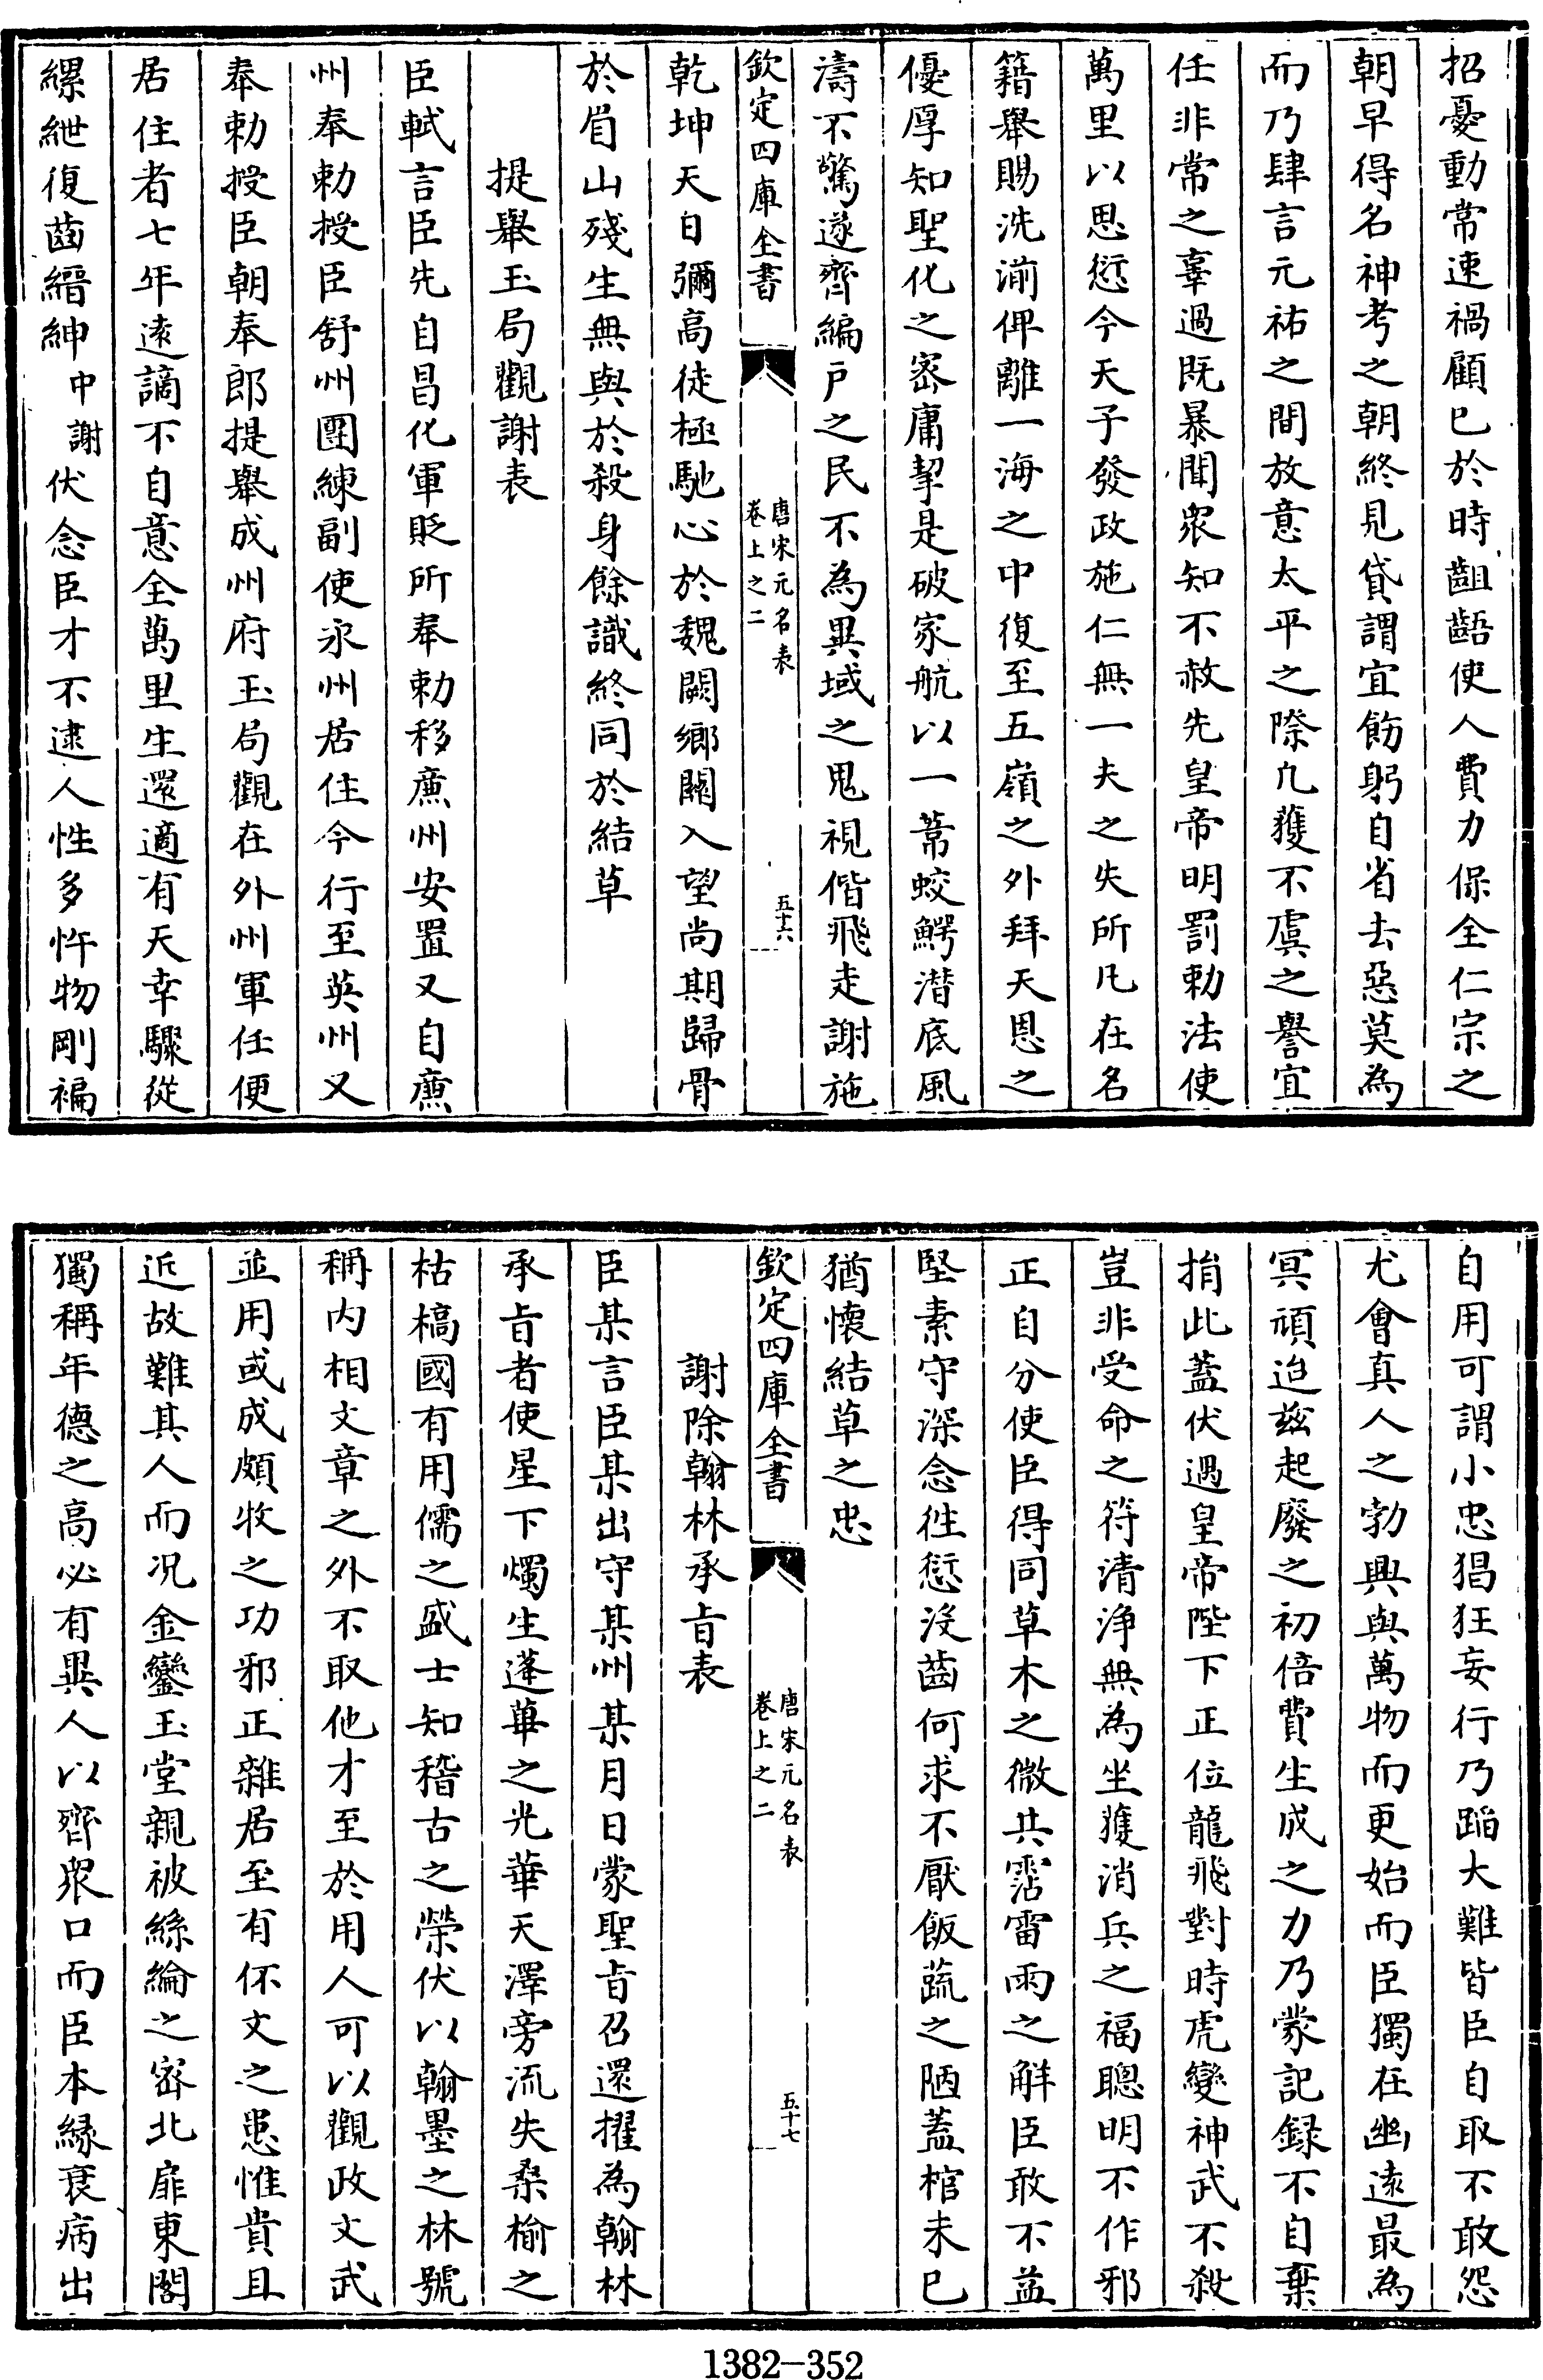 招憂動常速禍顧已於時齟齬使人費力保全仁宗之
朝早得名神考之朝終見貸謂宜飭躬自省去惡莫為
而乃肆言元祐之間放意太平之際凢獲不虞之譽宜
任非常之辜過既暴聞衆知不赦先皇帝明罰勅法使
萬里以思愆今天子發政施仁無一夫之失所凡在名
籍舉賜洗湔俾離一海之中復至五嶺之外拜天恩之
優厚知聖化之密庸挈是破家航以一葦蛟鰐潛底風
濤不驚遂齊編戸之民不為異域之鬼視偕飛走謝施
欽定四庫全書
唐宋元名表
卷上之二
五十六
乾坤天日彌高徒極馳心於魏闕鄉關入望尚期歸骨
於眉山殘生無與於殺身餘識終同於結草
提舉玉局觀謝表
臣軾言臣先自昌化軍貶所奉勅移亷州安置又自亷
州奉勅授臣舒州團練副使永州居住今行至英州又
奉勅授臣朝奉郎提舉成州府玉局觀在外州軍任便
居住者七年逺謫不自意全萬里生還適有天幸驟從
縲紲復齒縉紳中謝伏念臣才不逮人性多忤物剛褊
自用可謂小忠猖狂妄行乃蹈大難皆臣自取不敢怨
尤會真人之勃興與萬物而更始而臣獨在幽逺最為
冥頑迨兹起廢之初倍費生成之力乃蒙記録不自棄
捐此蓋伏遇皇帝陛下正位龍飛對時虎變神武不殺
豈非受命之符清浄無為坐獲消兵之福聰明不作邪
正自分使臣得同草木之微共霑雷雨之解臣敢不益
堅素守深念徃愆没齒何求不厭飯蔬之陋蓋棺未已
猶懷結草之忠
欽定四庫全書
唐宋元名表
卷上之二
五十七
謝除翰林承旨表
臣某言臣某出守某州某月日蒙聖旨召還擢為翰林
承旨者使星下燭生蓬蓽之光華天澤旁流失桑榆之
枯槁國有用儒之盛士知稽古之榮伏以翰墨之林號
稱内相文章之外不取他才至於用人可以觀政文武
並用或成頗牧之功邪正雜居至有伾文之患惟貴且
近故難其人而况金鑾玉堂親被絲綸之密北扉東閣
獨稱年德之高必有異人以齊衆口而臣本縁衰病出
1382－352